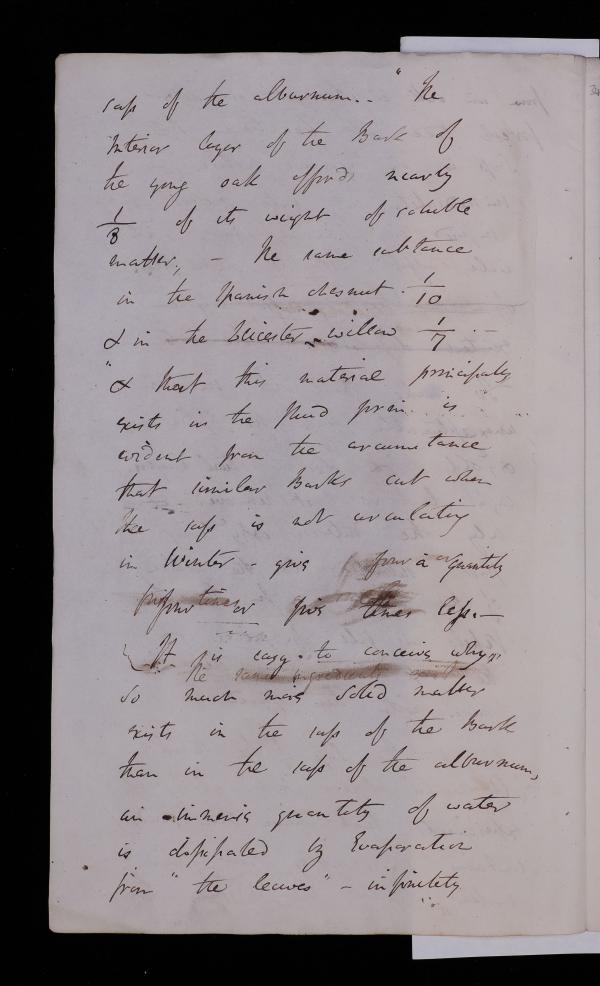 sap of the alburnum.. " The
Interior layer of the Bark of
the young oak affords nearly
1/8 of its weight of soluble
matter, – The same substance
in the Spanish chesnut 1/10
& in the Leicester willow 1/7
" & that this material principally
exists in the fluid form is
evident from the circumstance
that similar Barks cut when
the sap is not circulating
in Winter - give four a quantity
four or five times less. —
It is easy to conceive why
The same ingredients
so much more solid matter
exists in the sap of the Bark
than in the sap of the alburnum,
an immense quantity of water
is dissipated by Evaporation
from " the leaves " – infinitely